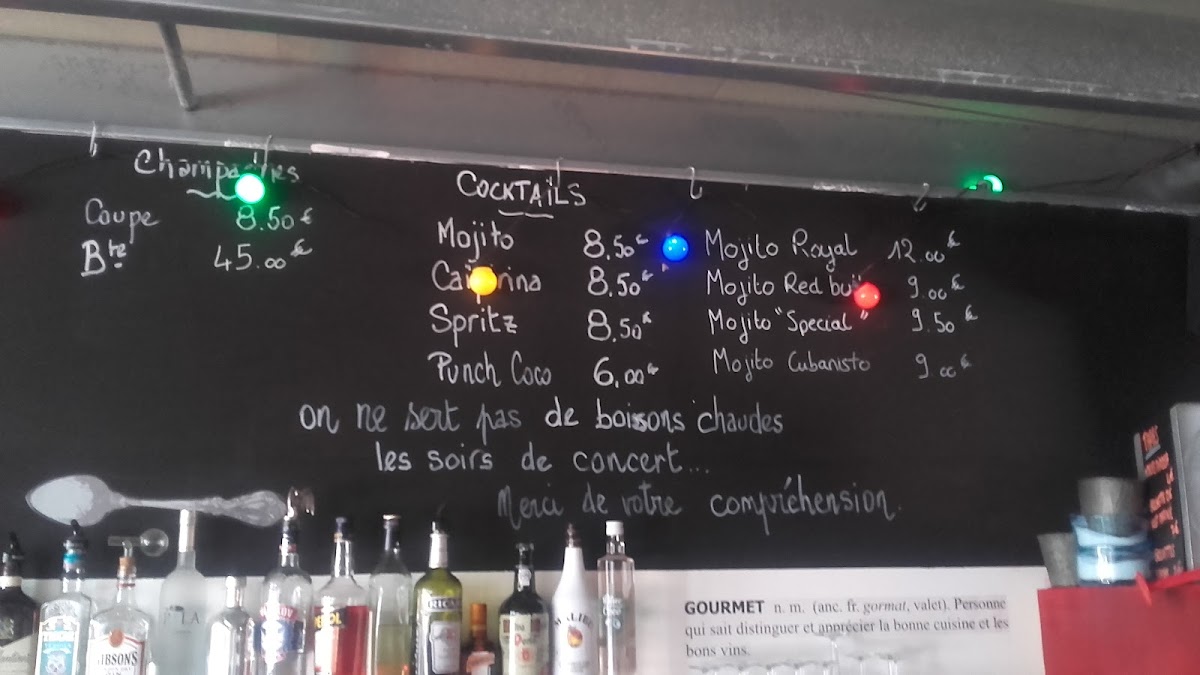 Champagnes
Coupe 8.50 €
Bte 45.00 €
COCKTAILS
Mojito 8.50 €
8.50 €
Spritz 8.50 €
Punch Coco 6.00 €
Mojito Royal 12.00 €
Mojito Red bull 9.00 €
Mojito "Special" 9.50 €
Mojito Cubanisto 9.00 €
on ne sert pas de boissons chaudes
les soirs de concert...
Merci de votre compréhension.
GOURMET n. m. (anc. fr. gormat, valet). Personne
qui sait distinguer et apprécier la bonne cuisine et les
bons vins.
GIBSONS
GIN
MALIBU